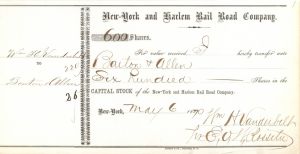 New-York and Harlem Rail Road Company.
600 Shares.
Wm H. Vanderbilt
For value received I hereby transfer unto
TO
Barton & Allen
Barton & Allen
Six Hundred Shares in the
CAPITAL STOCK of the New-York and Harlem Rail Road Company.
New-York, May 6
Wm H Vanderbilt